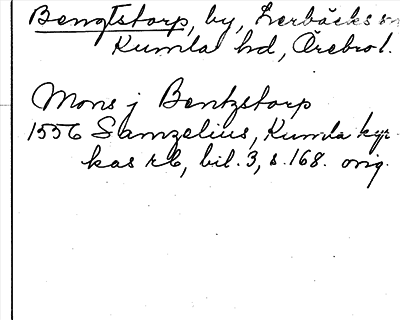 Bengtstorp, by, Lerbäcks sn
Kumla hd, Örebro l.
Mons j Bentzstorp
1556 Samzelius, Kumla kyr-
kas rb, bil. 3, s. 168. orig.